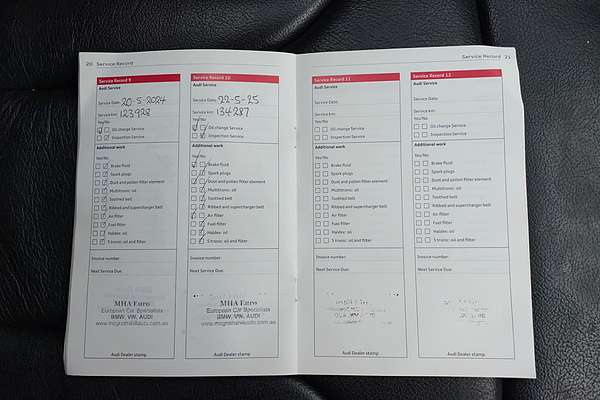 20 Service Record
Service Record 9
Audi Service
Service Date: 20-5-2024
Service km: 123928
Yes/No
Oil change Service
Inspection Service
Additional work
Yes/No
Brake fluid
Spark plugs
Dust and pollen filter element
Multitronic: oil
Toothed belt
Ribbed and supercharger belt
Air filter
Fuel filter
Haldex: oil
S tronic: oil and filter
Invoice number:
Next Service Due:
MHA Euro
European Car Specialists
BMW, VW, AUDI
Audi Dealer stamp
Service Record 10
Audi Service
Service Date: 22-5-25
Service km: 134287
Yes/No
Oil change Service
Inspection Service
Additional work
Yes/No
Brake fluid
Spark plugs
Dust and pollen filter element
Multitronic: oil
Toothed belt
Ribbed and supercharger belt
Air filter
Fuel filter
Haldex: oil
S tronic: oil and filter
Invoice number:
Next Service Due:
MHA Euro
European Car Specialists
BMW, VW, AUDI
Audi Dealer stamp
Service Record 21
Service Record 11
Audi Service
Service Date:
Service km:
Yes/No
Oil change Service
Inspection Service
Additional work
Yes/No
Brake fluid
Spark plugs
Dust and pollen filter element
Multitronic: oil
Toothed belt
Ribbed and supercharger belt
Air filter
Fuel filter
Haldex: oil
S tronic: oil and filter
Invoice number:
Next Service Due:
Audi Dealer stamp
Service Record 12
Audi Service
Service Date:
Service km:
Yes/No
Oil change Service
Inspection Service
Additional work
Yes/No
Brake fluid
Spark plugs
Dust and pollen filter element
Multitronic: oil
Toothed belt
Ribbed and supercharger belt
Air filter
Fuel filter
Haldex: oil
S tronic: oil and filter
Invoice number:
Next Service Due:
Audi Dealer stamp